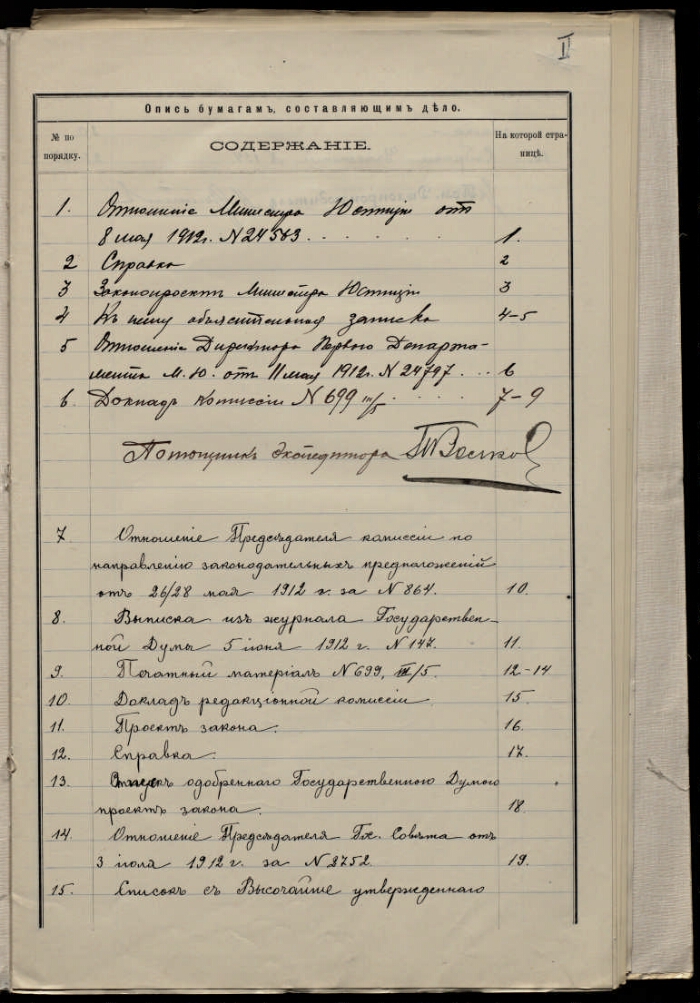 II
Опись бумагамъ, составляющимъ дѣло.
№ по порядку.
СОДЕРЖАНІЕ.
На которой стра-
ницѣ.
1. Отношеніе Министра Юстиціи отъ
8 мая 1912 г. N 24583 . . . . . . 1.
2 Справка 2
3 Законопроектъ Министра Юстиціи 3
4 Къ нему объяснительная записка 4-5
5 Отношеніе Директора Перваго Департа-
мента М. Ю. отъ 11 мая 1912 г. N 24797 . . . 6
6. Докладъ комиссіи N 699 III/5 . . . . 7-9
Помощникъ экспедитора
7 Отношеніе Предсѣдателя комиссіи по
направленію законодательныхъ предположеній
отъ 26/28 мая 1912 г. за N 864. 10.
8. Выписка изъ журнала Государствен-
ной Думы 5 іюня 1912 г. N 147. 11.
9. Печатный матеріалъ N 699, III/5. 12-14
10. Докладъ редакціонной комиссіи 15.
11. Проектъ закона. 16.
12. Справка. 17.
13. одобреннаго Государственною Думою
проектъ закона. 18.
14. Отношеніе Предсѣдателя Гос. Совѣта отъ
3 іюля 1912 г. за N 2752. 19.
15. Списокъ съ Высочайше утвержденнаго